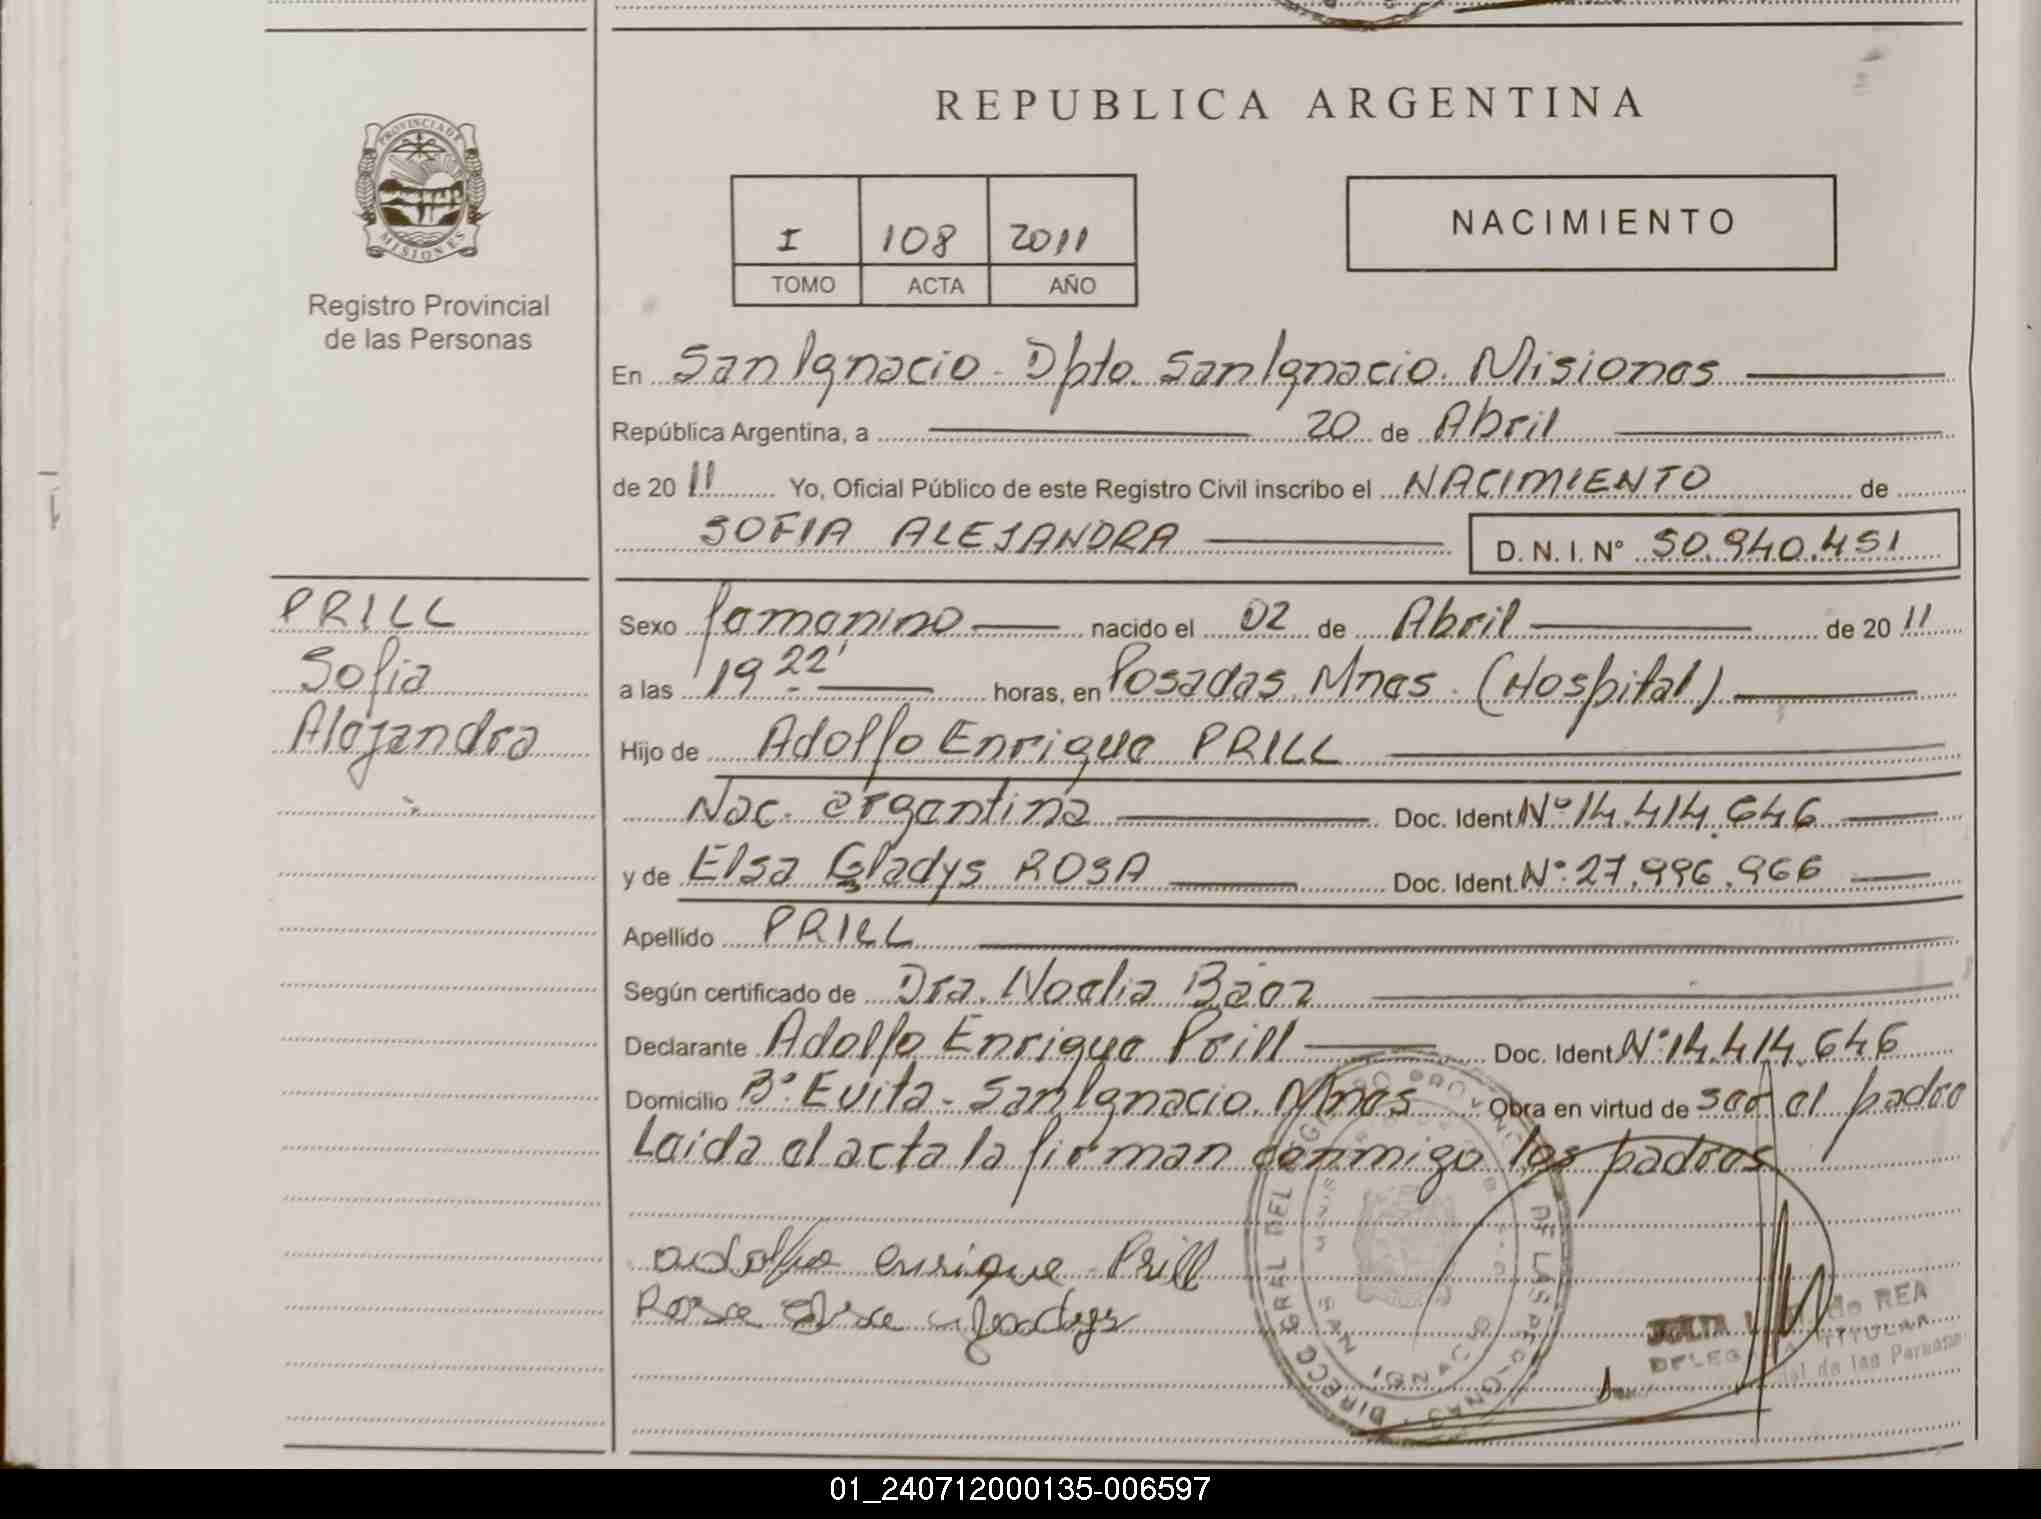 REPUBLICA ARGENTINA
PROVINCIA DE
MISIONES
Registro Provincial
de las Personas
I 108 2011
TOMO ACTA AÑO
NACIMIENTO
En San Ignacio - Dpto. San Ignacio. Misiones
República Argentina, a 20 de Abril
de 2011 Yo, Oficial Público de este Registro Civil inscribo el NACIMIENTO de
SOFIA ALEJANDRA D. N. I. Nº 50.940.451
PRILL
Sofia
Alejandra
Sexo femenino nacido el 02 de Abril de 2011
a las 19 22' horas, en Posadas, Mnes. (Hospital)
Hijo de Adolfo Enrique PRILL
Nac. argentina Doc. Ident. Nº 14.414.646
y de Elsa Gladys ROSA Doc. Ident. Nº 27.996.966
Apellido PRILL
Según certificado de Dra. Noelia Báez
Declarante Adolfo Enrique Prill Doc. Ident. Nº 14.414.646
Domicilio Bº Evita - San Ignacio. Mnes Obra en virtud de ser el padre
Leida el acta la firman conmigo los padres
Adolfo enrique Prill
Rosa Elsa Gladys
DIRECC GRAL DEL DE LAS
SAN IGNACIO
de REA
TITULAR
de las
01_240712000135-006597